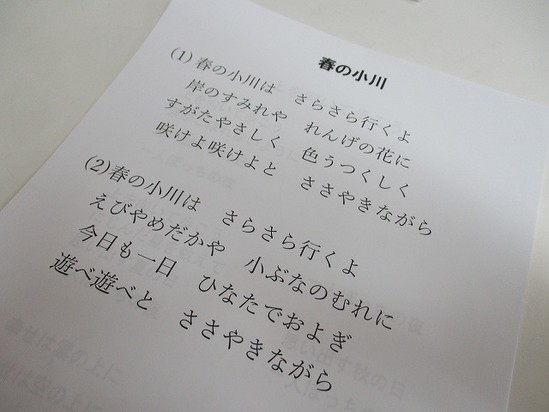 春の小川
(1) 春の小川は さらさら行くよ
岸のすみれや れんげの花に
すがたやさしく 色うつくしく
咲けよ咲けよと ささやきながら
(2) 春の小川は さらさら行くよ
えびやめだかや 小ぶなのむれに
今日も一日 ひなたでおよぎ
遊べ遊べと ささやきながら